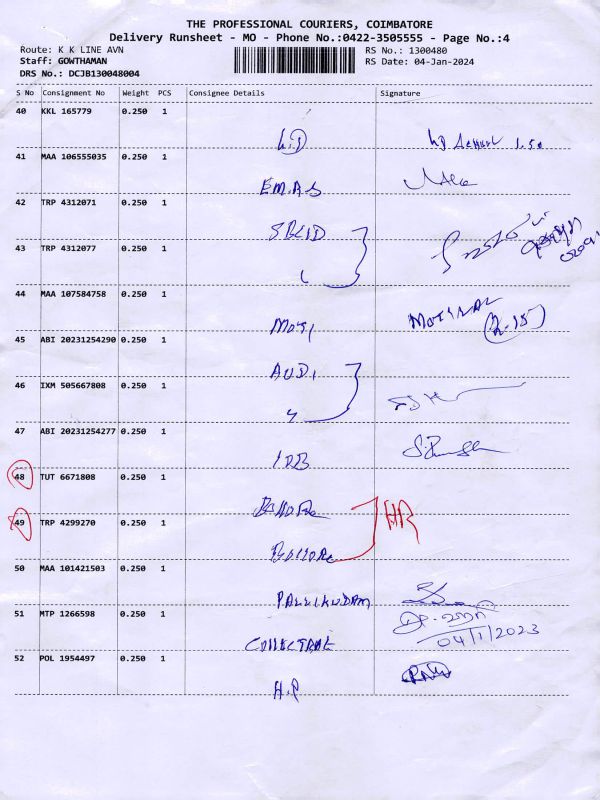 THE PROFESSIONAL COURIERS, COIMBATORE
Delivery Runsheet - MO - Phone No.:0422-3505555 - Page No.:4
Route: K K LINE AVN
Staff: GOWTHAMAN
DRS No.: DCJB130048004
RS No.: 1300480
RS Date: 04-Jan-2024
S No Consignment No Weight PCS Consignee Details Signature
40 KKL 165779 0.250 1
41 MAA 106555035 0.250 1
EMAS
42 TRP 4312071 0.250 1
43 TRP 4312077 0.250 1
44 MAA 107584758 0.250 1
MOTI MOTILAL
45 ABI 20231254290 0.250 1
AUDI
46 IXM 505667808 0.250 1
47 ABI 20231254277 0.250 1
48 TUT 6671808 0.250 1
49 TRP 4299270 0.250 1
HR
50 MAA 101421503 0.250 1
PALLIKUDAM
51 MTP 1266598 0.250 1
04/1/2023
52 POL 1954497 0.250 1
H.P